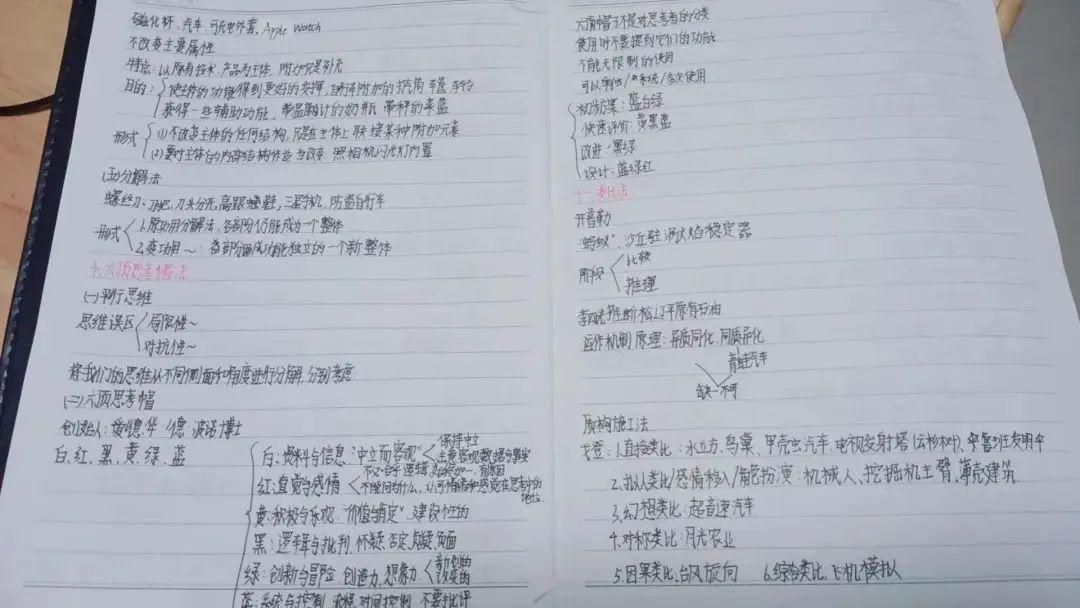 磁化杯、汽车、可充电外套, Apple Watch
不改变主要属性
特点：以原有技术、产品为主体，附加只是补充
目的：使主体的功能得到更好的发挥，自行车附加的 车筐 车铃
获得一些辅助功能，带温度计的奶瓶 带秤的菜篮
形式 (1)不改变主体的任何结构，只是在主体上联接某种附加元素
(2)要对主体的内部结构作适当改变 照相机闪光灯内置
(五)分解法
螺丝刀：刀把，刀头分元，高跟 鞋，三 机，防盗自行车
形式 1.原功用分解法，各部分仍能成为一个整体
2.变功用～：各部分 成功能独立的一个新整体
十、六顶思考帽法
(一)平行思维
思维误区 局限性～
对抗性～
将我们的思维从不同侧面和角度进行分解，分别考虑
(二)六顶思考帽
创始人：爱德华·德·波诺博士
白、红、黑、黄、绿、蓝
白：资料与信息 "中立而客观" 保持中立
注意客观数据与事实
红：直觉与感情 不必合乎逻辑
不能问为什么，认可情绪和感觉在思考中的地位
黄：积极与乐观，"价值与肯定"，建设性的
黑：逻辑与批判，怀疑，否定，质疑，负面
绿：创新与冒险，创造力，想象力 新型的
改变的
蓝：系统与控制 流程，时间控制，不要批评
六顶帽子不是对思考者的分类
使用时不要提到它们的功能
不能无限制的使用
可以单独/系统/多次使用
初步方案：蓝白绿
快速评价：黄黑蓝
改进：黑绿
设计：蓝绿红
十一、类比法
开普勒
"蚂蚁"，沙丘驻涡火焰稳定器
阶段 比较
推理
李四光推断松辽平原有石油
运作机制 原理：异质同化，同质异化
汽车
缺一不可
质构施工法
戈登：1.直接类比：水立方、鸟巢，甲壳虫汽车，电视发射塔(云杉树)，鲁班发明伞
2.拟人类比/感情移入/角色扮演：机械人、挖掘机主臂，薄壳建筑
3.幻想类比：超音速汽车
4.对称类比：月光农业
5.因果类比，台风旋向 6.综合类比，飞机模拟